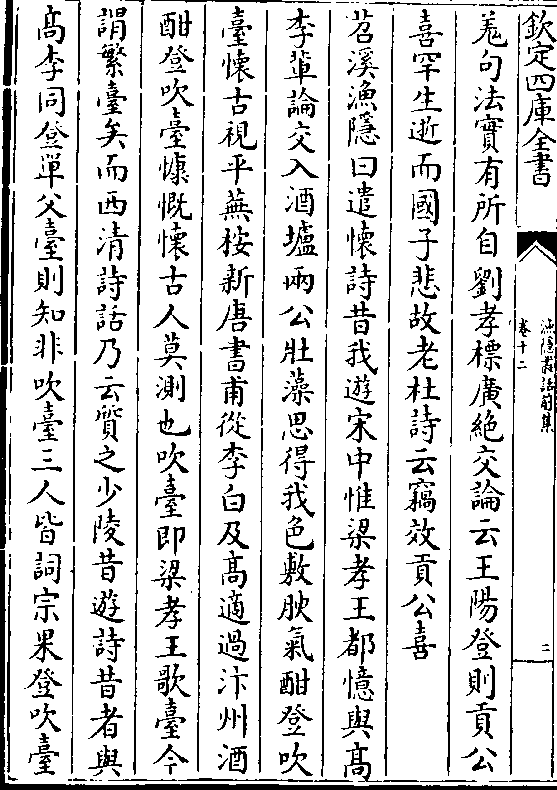 欽定四庫全書
漁隱叢話前集
卷十二
二
羗句法實有所自劉孝標廣絶交論云王陽登則貢公
喜罕生逝而國子悲故老杜詩云竊效貢公喜
苕溪漁隱曰遣懷詩昔我遊宋中惟梁孝王都憶與髙
李輩論交入酒壚兩公壯藻思得我色敷腴氣酣登吹
臺懷古視平蕪桉新唐書甫從李白及髙適過汴州酒
酣登吹臺慷慨懷古人莫測也吹臺即梁孝王歌臺今
謂繁臺矣而西清詩話乃云質之少陵昔遊詩昔者與
髙李同登單父臺則知非吹臺三人皆詞宗果登吹臺